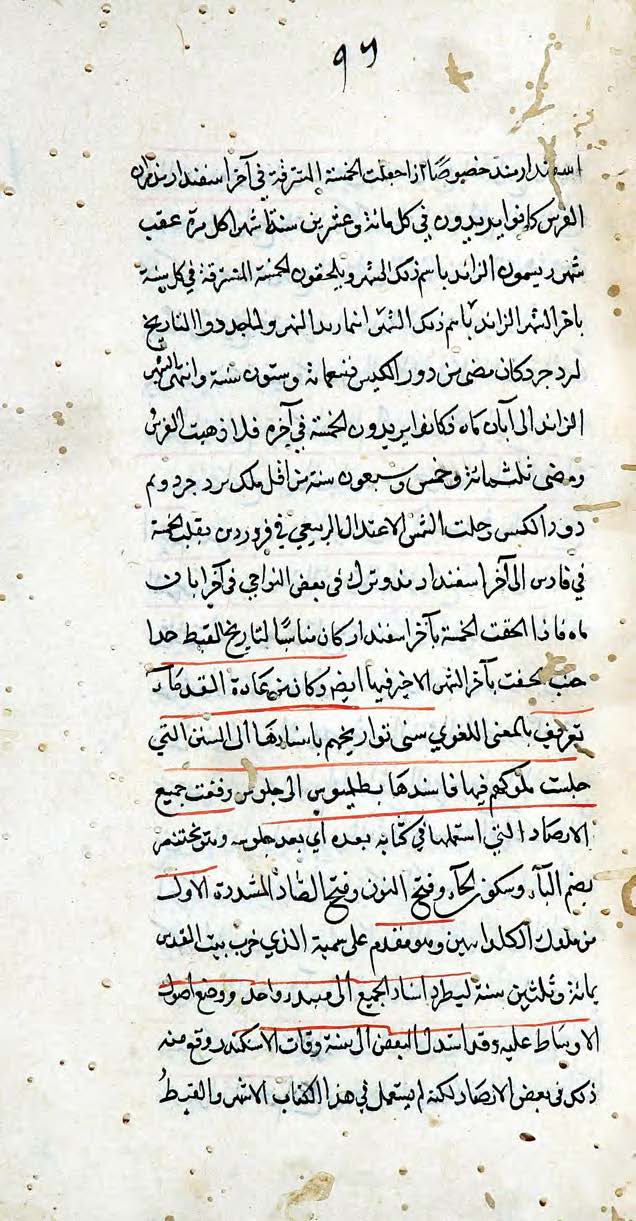 ٩٦
اسفندارمند خصوصًا اذا جعلت الخمسة المسترقة في آخر اسفندارمند فان
الفرس كانوا يزيدون في كل مائة وعشرين سنة شهرا كل مرة عقب
شهر ويسمون الزائد باسم ذلك الشهر ويلحقون الخمسة المسترقة في كل سنة
بآخر الشهر الزائد باسم ذلك الشهر ولما جددوا التاريخ
ليزدجرد كان مضى من دور الكبس تسعمائة وستون سنة وانتهى الشهر
الزائد الى آبان ماه فكانوا يزيدون الخمسة في آخره فلما ذهبت الفرس
ومضى ثلثمائة وخمس وسبعون سنة من اول ملك يزدجرد وتم
دور الكبس وحلت الشمس الاعتدال الربيعي في فروردين نقلت الخمسة
في فارس الى آخر اسفندارمذ وترك في بعض النواحي في آخر ابان
ماه فاذا الحقت الخمسة بآخر اسفندار كان مناسبًا لتاريخ القبط جدا
بآخر الشهر الاخير فيها ايضا وكان من عادة القدماء
تعريف بالمعنى اللغوي سني تواريخهم باسنادها الى السنن التي
جلست ملوكهم فيها فاسندها بطلميوس الى جلوس وقعت جميع
الارصاد التي استعملها في كتابه بعده أي بعد جلوسه وبختنصر
بضم الباء وسكون الخاء وفتح النون وفتح الصاد المشددة الاول
من ملوك الكلدانيين وهو مقدم على سمية الذي خرب بيت المقدس
بمائة وثلثين سنة ليطرد اسناد الجميع الى مبدء واحد ووضع اصول
الاوساط عليه وقد استدل البعض الى سنة وفات الاسكندر وقع منه
ذلك في بعض الارصاد لكنه لم يستعمل في هذا الكتاب الاشهر والقبط